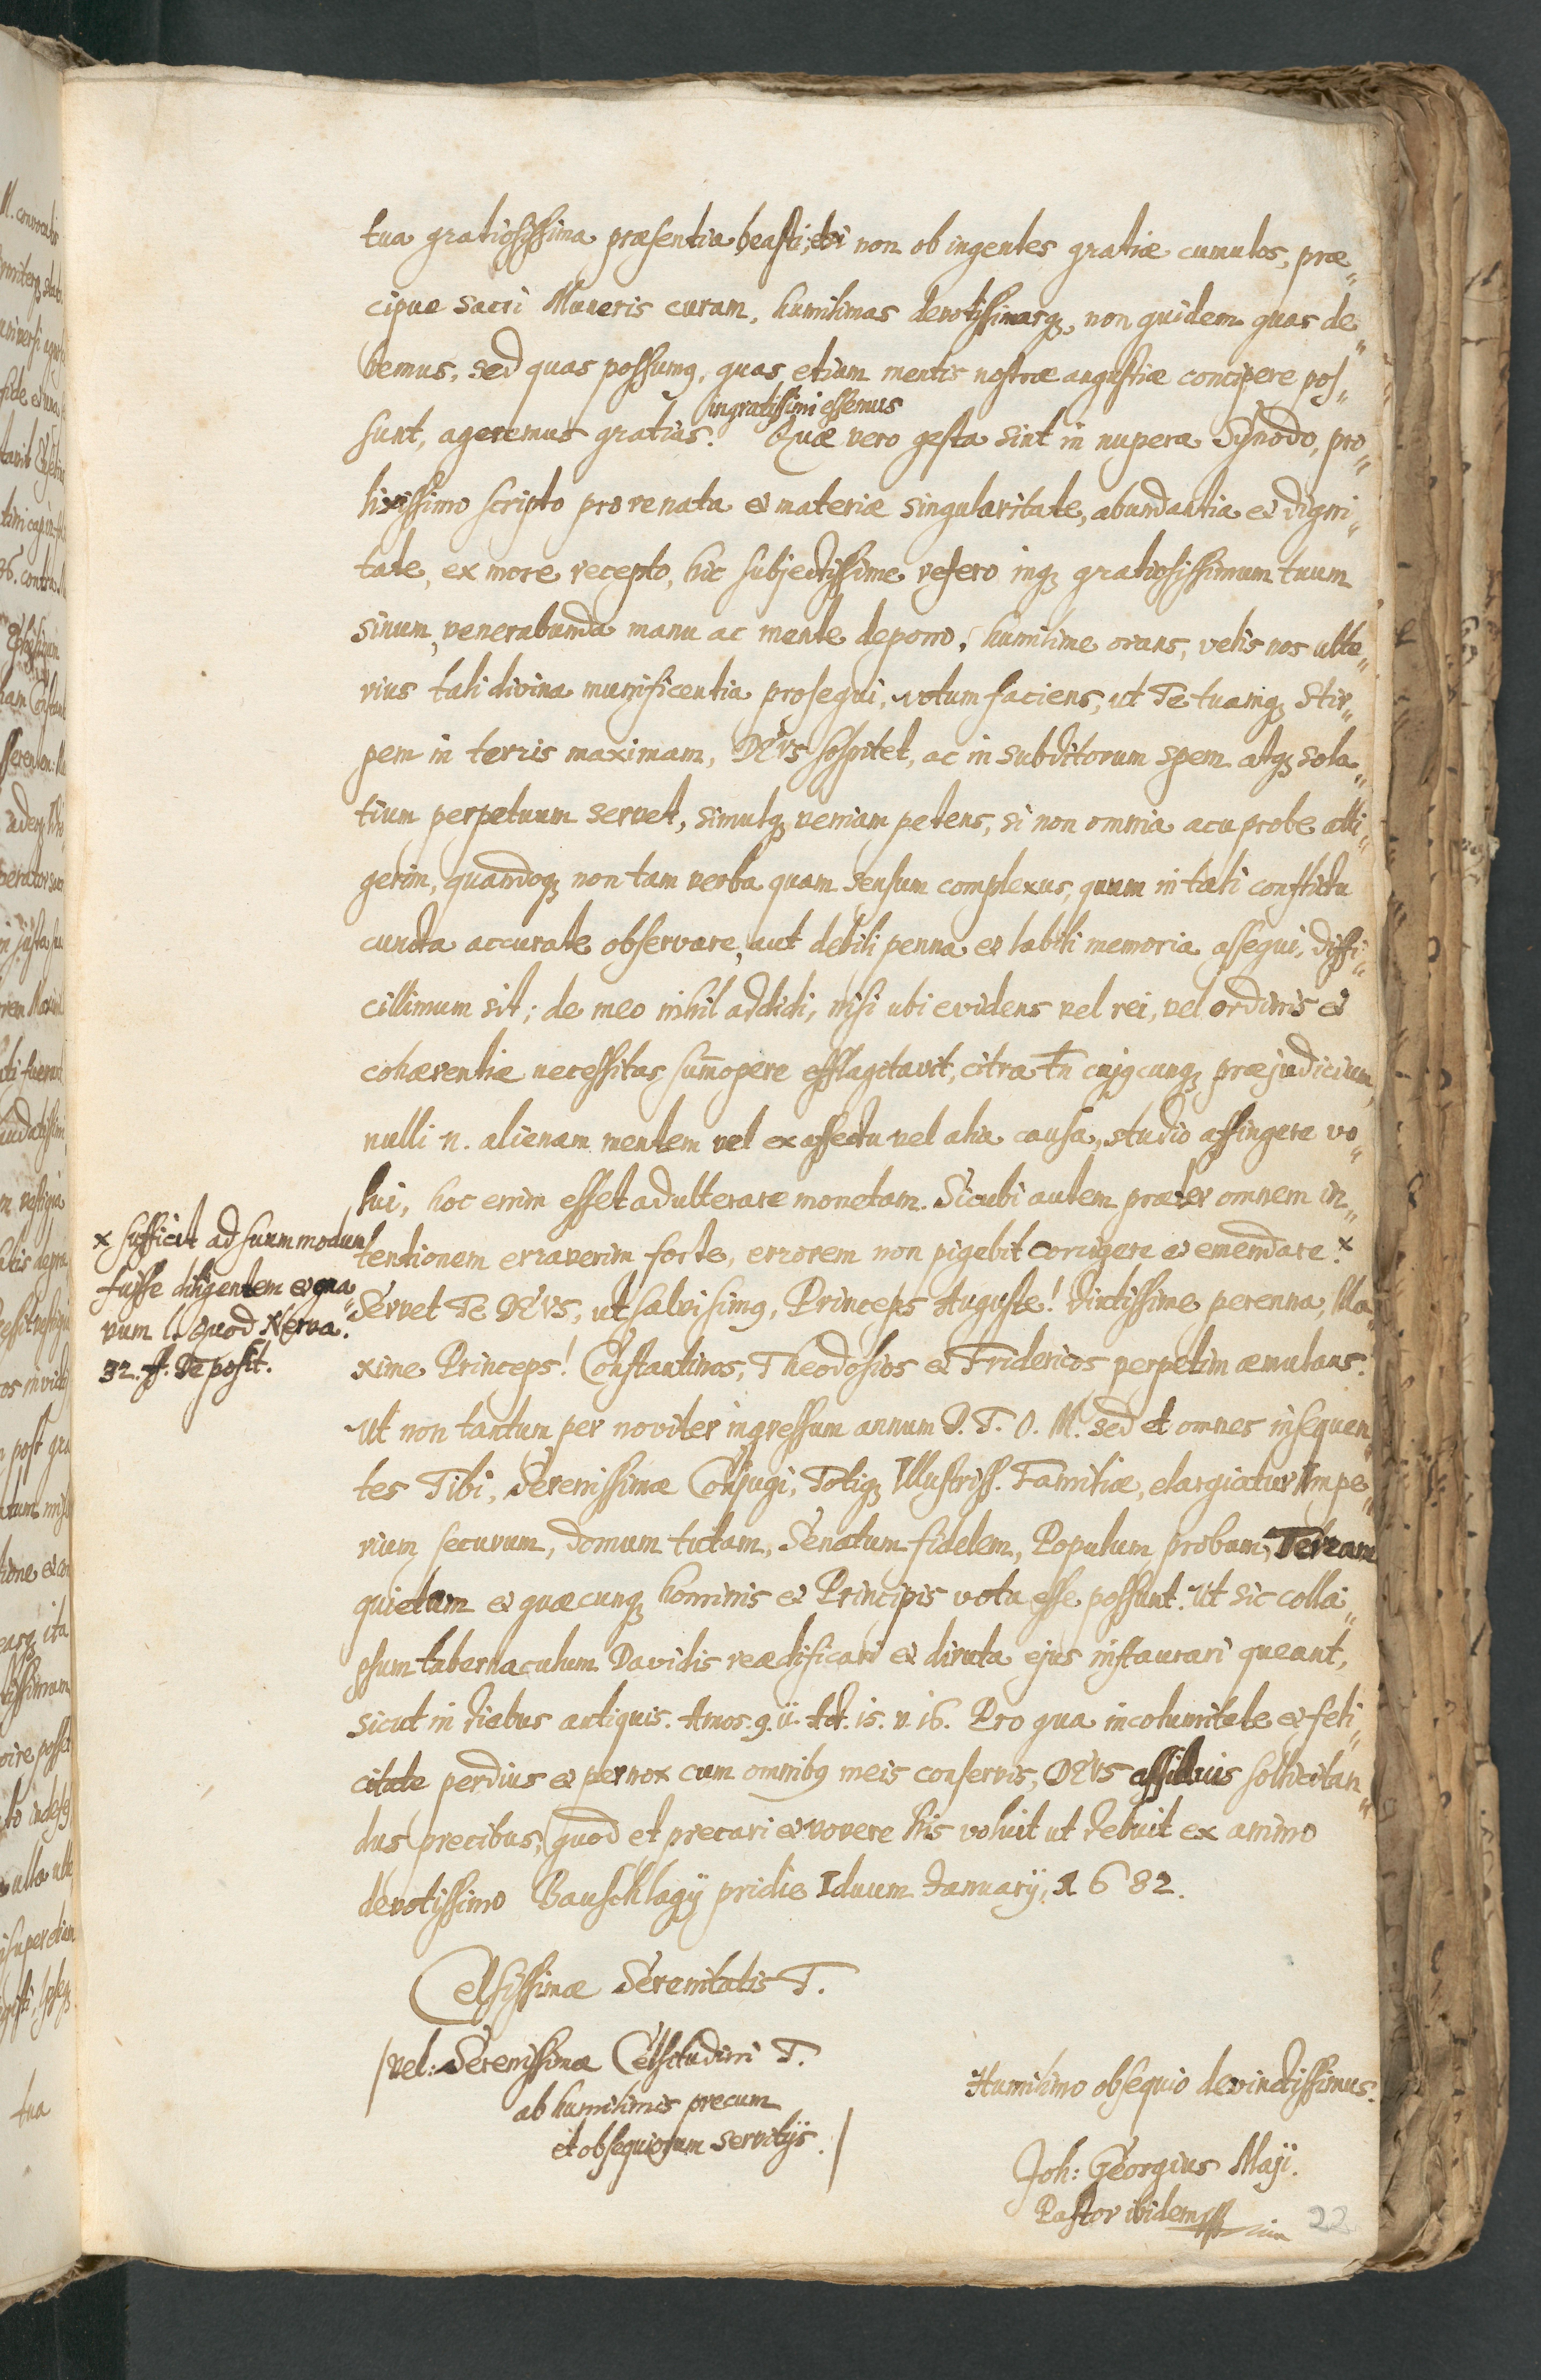 tua gratiosissima præsentia beasti, etsi non ob ingentes gratiæ cumulos, præ-
cipue sacri Muneris curam, humilimas devotissimasq₃, non quidem quas de-
bemus, sed quas possumq, quas etiam mentis nostræ angustiæ concipere pos-
ingratissimi essemus
sunt, ageremus gratias. Quæ vero gesta sint in nupera Synodo, pro-
lixissimo scripto pro re nata et materiæ singularitate, abundantia et digni-
tate, ex more recepto, hic subjectissime refero inq₃ gratiosissimum tuum
sinum, venerabunda manu ac mente depono, humilime orans, velis nos ulte-
rius tali divina munificentia prosequi, votum faciens, ut Te tuamq₃ Stir-
pem in terris maximam, DEVS sospitet, ac in subditorum spem atq₃ sola-
tium perpetuum servet, simulq₃ veniam petens, si non omnia acu probe atti-
gerim, quandoq₃ non tam verba quam sensum complexus, quum in tali conflictu
cuncta accurate observare, aut debili penna et labili memoria assequi, diffi-
cillimum sit; de meo nihil addidi, nisi ubi evidens vel rei, vel ordinis et
cohærentiæ necessitas sum̄opere efflagitavit, citra tn̄ cujqcunq₃ præjudicium,
nulli n. alienam mentem vel ex affectu vel alia causa, studio affingere vo-
lui, hoc enim esset adulterare monetam. Sicubi autem præter omnem in-
tentionem erraverim forte, errorem non pigebit corrigere et emendare. x
x sufficit ad suum modum
fuisse diligentem et gna-
vum l. quod Nerva.
32. ff. Deposit.
Servet Te DEVS, ut salvi simq, Princeps Auguste! Diutissime perenna, Ma-
xime Princeps! Constantinos, Theodosios et Fridericos perpetim æmulans.
Ut non tantum per noviter ingressum annum D. T. O. M. sed et omnes insequen-
tes Tibi, Serenissimæ Conjugi, Totiq₃ Illustriss. Familiæ, elargiatur Impe-
rium securum, domum tutam, Senatum fidelem, Populum probum, Terram
quietam et quæcunq₃ hominis et Principis vota esse possunt. Ut sic colla-
psum tabernaculum Davidis reædificari et diruta ejus instaurari queant,
sicut in diebus antiquis. Amos. 9. 11. Act. 15. v. 16. Pro qua incolumitate et feli-
citate perdius et pernox cum omnibq meis conservis, DEVS assiduis sollicitan-
dus precibus, quod et precari et vovere his voluit ut debuit ex animo
devotissimo Bauschlagij pridie Iduum Januarij, 1682.
Celsissimæ Serenitatis T.
/vel: Serenissimæ Celsitudini T.
ab humilimis precum
et obsequiorum servitijs. /
Humilimo obsequio devinctissimus.
Joh: Georgius Maji.
Pastor ibidem
22